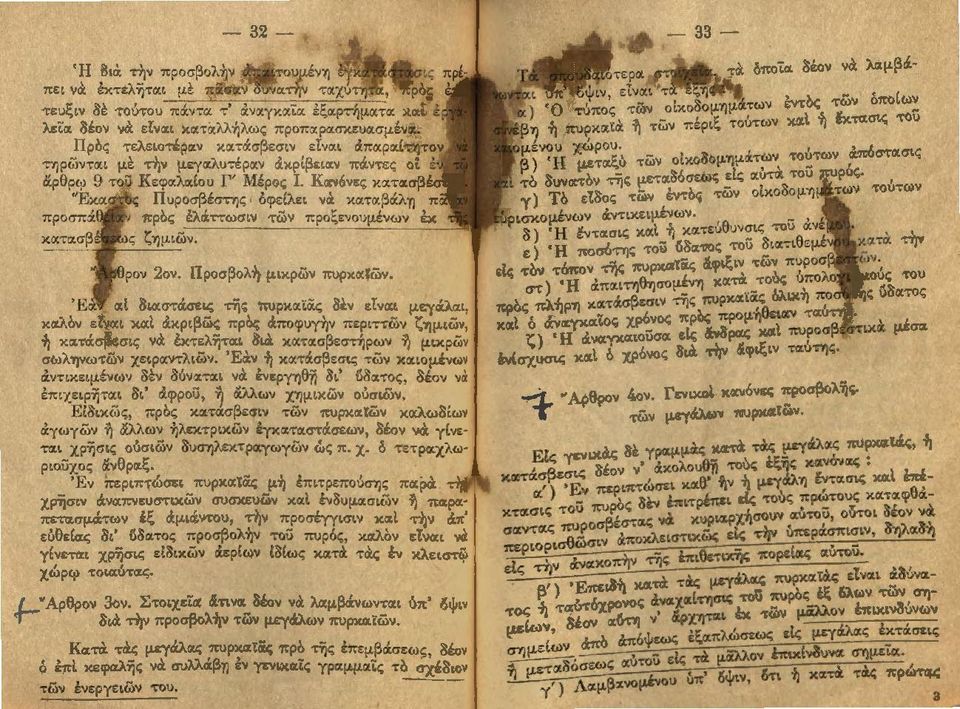 — 32 —
Ἡ διὰ τὴν προσβολὴν ἀπαιτουμένη ἐγκατάστασις πρέ-
πει νὰ ἐκτελῆται μὲ πᾶσαν δυνατὴν ταχύτητα, πρὸς
τευξιν δὲ τούτου πάντα τ' ἀναγκαῖα ἐξαρτήματα καὶ ἐργα-
λεῖα δέον νὰ εἶναι καταλλήλως προπαρασκευασμένα.
Πρὸς τελειοτέραν κατάσβεσιν εἶναι ἀπαραίτητον νὰ
τηρῶνται μὲ τὴν μεγαλυτέραν ἀκρίβειαν πάντες οἱ ἐν τῷ
ἄρθρῳ 9 τοῦ Κεφαλαίου Γ' Μέρος Ι. Κανόνες κατασβέσ
Ἕκαστος Πυροσβέστης ὀφείλει νὰ καταβάλῃ πᾶσαν
προσπάθειαν πρὸς ἐλάττωσιν τῶν προξενουμένων ἐκ τῆς
κατασβέσεως ζημιῶν.
Ἄρθρον 2ον. Προσβολὴ μικρῶν πυρκαϊῶν.
Ἐὰν αἱ διαστάσεις τῆς πυρκαϊᾶς δὲν εἶναι μεγάλαι,
καλὸν εἶναι καὶ ἀκριβῶς πρὸς ἀποφυγὴν περιττῶν ζημιῶν,
ἡ κατάσβεσις νὰ ἐκτελῆται διὰ κατασβεστήρων ἢ μικρῶν
σωληνωτῶν χειραντλιῶν. Ἐὰν ἡ κατάσβεσις τῶν καιομένων
ἀντικειμένων δὲν δύναται νὰ ἐνεργηθῇ δι' ὕδατος, δέον νὰ
ἐπιχειρῆται δι' ἀφροῦ, ἢ ἄλλων χημικῶν οὐσιῶν.
Εἰδικῶς, πρὸς κατάσβεσιν τῶν πυρκαϊῶν καλωδίων
ἀγωγῶν ἢ ἄλλων ἠλεκτρικῶν ἐγκαταστάσεων, δέον νὰ γίνε-
ται χρῆσις οὐσιῶν δυσηλεκτραγωγῶν ὡς π. χ. ὁ τετραχλω-
ριοῦχος ἄνθραξ.
Ἐν περιπτώσει πυρκαϊᾶς μὴ ἐπιτρεπούσης παρὰ τὴν
χρῆσιν ἀναπνευστικῶν συσκευῶν καὶ ἐνδυμασιῶν ἢ παρα-
πετασμάτων ἐξ ἀμιάντου, τὴν προσέγγισιν καὶ τὴν ἀπ'
εὐθείας δι' ὕδατος προσβολὴν τοῦ πυρός, καλὸν εἶναι νὰ
γίνεται χρῆσις εἰδικῶν ἀερίων ἰδίως κατὰ τὰς ἐν κλειστῷ
χώρῳ τοιαύτας.
Ἄρθρον 3ον. Στοιχεῖα ἅτινα δέον νὰ λαμβάνωνται ὑπ' ὄψιν
διὰ τὴν προσβολὴν τῶν μεγάλων πυρκαϊῶν.
Κατὰ τὰς μεγάλας πυρκαϊᾶς πρὸ τῆς ἐπεμβάσεως, δέον
ὁ ἐπὶ κεφαλῆς νὰ συλλάβῃ ἐν γενικαῖς γραμμαῖς τὸ σχέδιον
τῶν ἐνεργειῶν του.
— 33 —
Τὰ σπουδαιότερα στοιχεῖα, τὰ ὁποῖα δέον νὰ λαμβά-
νωνται ὑπ' ὄψιν, εἶναι τὰ ἑξῆς
α) Ὁ τύπος τῶν οἰκοδομημάτων ἐντὸς τῶν ὁποίων
συνέβη ἡ πυρκαϊὰ ἢ τῶν πέριξ τούτων καὶ ἡ ἔκτασις τοῦ
καιομένου χώρου.
β) Ἡ μεταξὺ τῶν οἰκοδομημάτων τούτων ἀπόστασις
καὶ τὸ δυνατὸν τῆς μεταδόσεως εἰς αὐτὰ τοῦ πυρός.
γ) Τὸ εἶδος τῶν ἐντὸς τῶν οἰκοδομημάτων τούτων
εὑρισκομένων ἀντικειμένων.
δ) Ἡ ἔντασις καὶ ἡ κατεύθυνσις τοῦ ἀνέμου.
ε) Ἡ ποσότης τοῦ ὕδατος τοῦ διατιθεμένου κατὰ τὴν
εἰς τὸν τόπον τῆς πυρκαϊᾶς ἄφιξιν τῶν πυροσβεστῶν.
στ) Ἡ ἀπαιτηθησομένη κατὰ τοὺς ὑπολογισμούς του
πρὸς πλήρη κατάσβεσιν τῆς πυρκαϊᾶς ὁλικὴ ποσότης ὕδατος
καὶ ὁ ἀναγκαῖος χρόνος πρὸς προμήθειαν ταύτης.
ζ) Ἡ ἀναγκαιοῦσα εἰς ἄνδρας καὶ πυροσβεστικὰ μέσα
ἐνίσχυσις καὶ ὁ χρόνος διὰ τὴν ἄφιξιν ταύτης.
Ἄρθρον 4ον. Γενικοὶ κανόνες προσβολῆς.
τῶν μεγάλων πυρκαϊῶν.
Εἰς γενικὰς δὲ γραμμὰς κατὰ τὰς μεγάλας πυρκαϊάς, ἡ
κατάσβεσις δέον ν' ἀκολουθῇ τοὺς ἑξῆς κανόνας :
α') Ἐν περιπτώσει καθ' ἣν ἡ μεγάλη ἔντασις καὶ ἐπέ-
κτασις τοῦ πυρὸς δὲν ἐπιτρέπει εἰς τοὺς πρώτους καταφθά-
σαντας πυροσβέστας νὰ κυριαρχήσουν αὐτοῦ, οὗτοι δέον νὰ
περιορισθῶσιν ἀποκλειστικῶς εἰς τὴν ὑπεράσπισιν, δηλαδὴ
εἰς τὴν ἀνακοπὴν τῆς ἐπιθετικῆς πορείας αὐτοῦ.
β') Ἐπειδὴ κατὰ τὰς μεγάλας πυρκαϊὰς εἶναι ἀδύνα-
τος ἡ ταὐτόχρονος ἀναχαίτησις τοῦ πυρὸς ἐξ ὅλων τῶν ση-
μείων, δέον αὕτη ν' ἄρχηται ἐκ τῶν μᾶλλον ἐπικινδύνων
σημείων ἀπὸ ἀπόψεως ἐξαπλώσεως εἰς μεγάλας ἐκτάσεις
ἢ μεταδόσεως αὐτοῦ εἰς τὰ μᾶλλον ἐπικίνδυνα σημεῖα.
γ') Λαμβανομένου ὑπ' ὄψιν, ὅτι ἡ κατὰ τὰς πρώτας
3